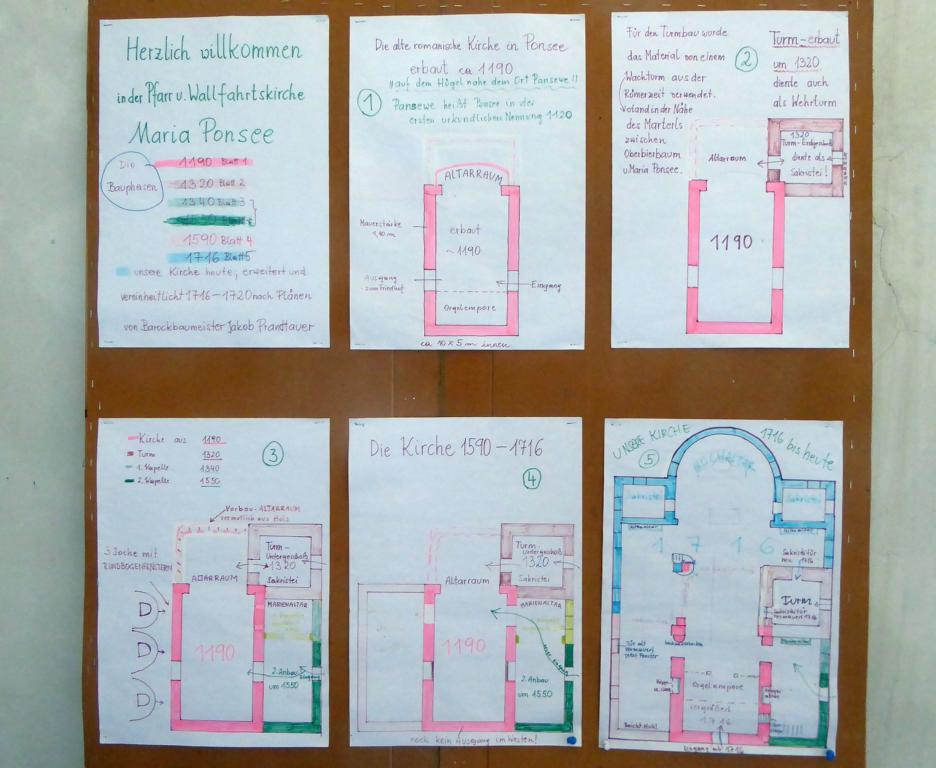 Herzlich willkommen
in der Pfarr u. Wallfahrtskirche
Maria Ponsee
Die
Bauphasen
1190 Blatt 1
1320 Blatt 2
1340 Blatt 3
1590 Blatt 4
1716 Blatt 5
unsere Kirche heute, erweitert und
vereinheitlicht 1716-1720 nach Plänen
von Barockbaumeister Jakob Prandtauer
Die alte romanische Kirche in Ponsee
erbaut ca 1190
!! auf dem Hügel nahe dem Ort Pansewe !!
1
Pansewe heißt Ponsee in der
ersten urkundlichen Nennung 1120
ALTARRAUM
Mauerstärke
1,10 m
erbaut
~1190
Ausgang
zum Friedhof
Eingang
Orgelempore
ca 10 x 5 m innen
Für den Turmbau wurde
das Material von einem
Wachturm aus der
Römerzeit verwendet.
Standort in der Nähe
des Marterls
zwischen
Oberbierbaum
u Maria Ponsee.
2
Turm-erbaut
um 1320
diente auch
als Wehrturm
1320
diente als
Sakristei!
Altarraum
1190
Kirche aus 1190
Turm 1320
1. Kapelle 1340
2. Kapelle 1550
3
Vorbau-ALTARRAUM
vermutlich aus Holz
3 Joche mit
RUNDBOGENFENSTERN
Turm-
Untergeschoß
1320
Sakristei
ALTARRAUM
MARIENALTAR
1190
2. Anbau
um 1550
Die Kirche 1590-1716
4
Turm-
Untergeschoß
1320
Sakristei
Altarraum
MARIENALTAR
1190
2. Anbau
um 1550
noch kein Ausgang im Westen!
UNSERE KIRCHE
1716 bis heute
5
HOCHALTAR
Sakristei
Sakristei
1716
Sakristeitür
neu 1716
Turm
Sakristeitür
vermauert 1716
Tür alt
vermauert
jetzt Fenster
Orgelempore
vergrößert
1716
Beichtstuhl
Eingang ab 1716